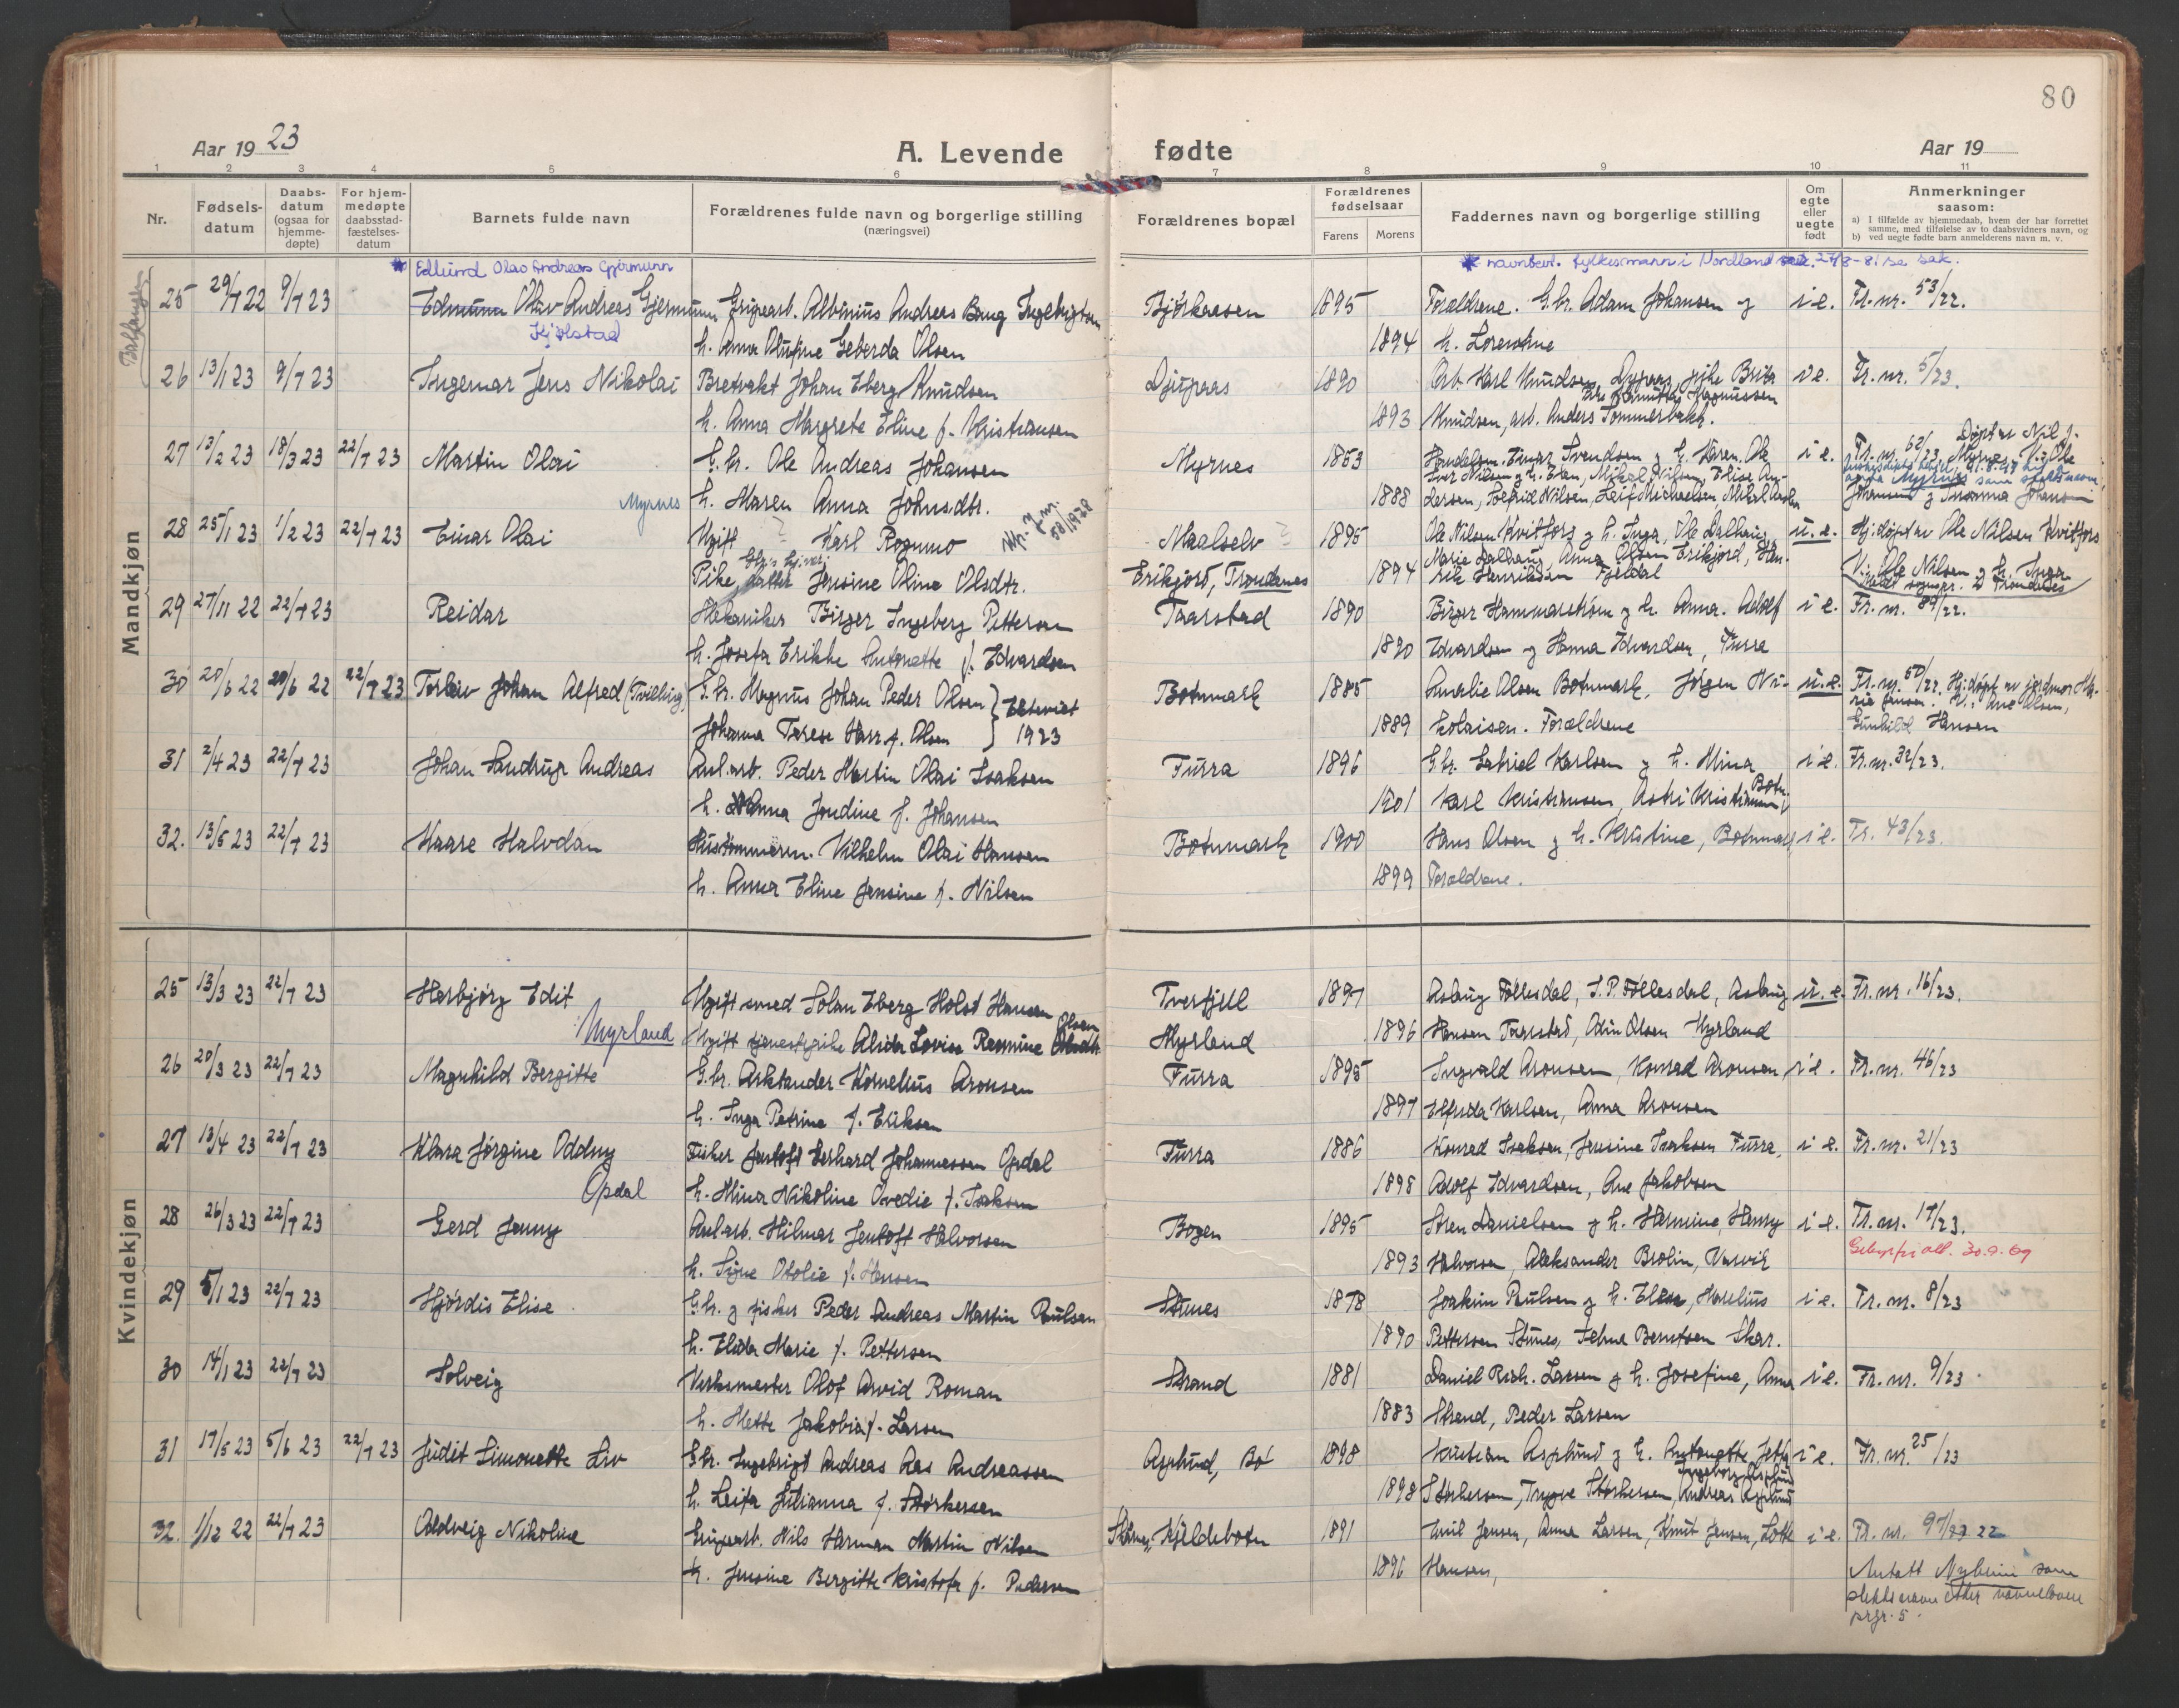 80
Aar 1923
A. Levende fødte
Aar 19
1 2 3 4 5 6 7 8 9 10 11
Nr.
Fødsels-datum
Daabs-datum (ogsaa for hjemme-døpte)
For hjem-medøpte daabsstad-fæstelses-datum
Barnets fulde navn
Forældrenes fulde navn og borgerlige stilling (næringsvei)
Forældrenes bopæl
Forældrenes fødselsaar
Farens Morens
Faddernes navn og borgerlige stilling
Om egte eller uegte født
Anmerkninger saasom:
a) I tilfælde av hjemmedaab, hvem der har forrettet samme, med tilføielse av to daabsvidners navn, og
b) ved uegte fødte barn anmelderens navn m. v.
Mandkjøn
* Edmund Olav Andreas Gjermunn
* navnbevi. fylkesmann i Nordland 27/3-81 se sak.
25 29/7 22 9/7 23 Edmunn Olav Andreas Gjermunn Grupearb. Albinius Andreas Baug Ingebrigtsen Bjørkaasen 1895 Forældrene. G.br. Adam Johansen og i e. Fr. nr. 53/22.
Kjølstad h. Anna Olufine Geberda Olsen 1894 h. Lorentine
26 13/1 23 9/7 23 Ingemar Jens Nikolai Bretvakt Johan Eberg Knudsen Djupaas 1890 Arb. Karl Knudsen, Dypaas, pike Brita i e. Fr. nr. 5/23.
h. Anna Margrete Eline f. Kristiansen 1893 Knudsen, arb. Anders Tommerbakk.
27 13/2 23 18/3 23 22/7 23 Martin Olai G.br. Ole Andreas Johansen Myrnes 1883 Handelsm. Einar Svendsen og h. Karen. Ole i e. Fr. nr. 62/23
Myrnes h. Maren Anna Johnsdtr. 1888 Larsen, Solfrid Nilsen, Leif Michaelsen
28 25/1 23 1/2 23 22/7 23 Einar Olai Ugift Karl Rognmo Maalselv 1895 Ole Nilsen Kvitfors og h. Inga, Ole Dalhaug, u. e. Hj.døpt av Ole Nilsen Kvitfors
Pike Jensine Oline Olsdtr. Erikjord, Trondenes 1894 Marie Dalhaug, Anna Olsen Erikjord, Hen-rik Henriksen Fjeldal V.: Ole Nilsen og h. Inga
29 27/11 22 22/7 23 Reidar Mekaniker Birger Ingeberg Petterson Taarstad 1890 Birger Hammarstrøm og h. Anna. Adolf i e. Fr. nr. 84/22.
h. Josefa Erikke Antonette f. Edvardsen 1890 Edvardsen og Hanna Edvardsen, Furra
30 20/6 22 20/6 22 22/7 23 Torleiv Johan Alfred (Tvilling) G.br. Magnus Johan Peder Olsen Botnmark 1885 Amalie Olsen Botnmark, Jørgen Ni- u. e. Fr. nr. 50/22. Hj.døpt av jordmor Ma-
Johanna Terese Harr f. Olsen } Ekteviet 1923 1889 kolaisen. Forældrene rie Jensen. V.: Ane Olsen, Gunhild Hansen
31 2/4 23 22/7 23 Johan Sandrup Andreas Anl.arb. Peder Martin Olai Isaksen Furra 1896 G.br. Gabriel Karlsen og h. Mina i e. Fr. nr. 32/23.
h. Anna Jondine f. Johansen 1901 Karl Kristiansen, Astri Kristiansen, Botn.
32. 13/5 23 22/7 23 Kaare Halvdan Hustømmerm. Vilhelm Olai Hansen Botnmark 1900 Hans Olsen og h. Kristine, Botnmark i e. Fr. 43/23.
h. Anna Eline Jensine f. Nilsen 1899 Forældrene.
Kvindekjøn
25 13/3 23 22/7 23 Herbjørg Edit Ugift smed Johan Eberg Holst Hansen Tverfjell 1897 Aslaug Føllesdal, S. P. Føllesdal, Aslaug u. e. Fr. nr. 16/23.
Myrland Ugift tjenestepike Alida Lovise Rasmine Olsen Myrland 1896 Hansen Taarstad, Odin Olsen Myrland
26 20/3 23 22/7 23 Magnhild Bergitte G.br. Arktander Kornelius Aronsen Furra 1895 Ingvald Aronsen, Konrad Aronsen, i e. Fr. nr. 46/23
h. Inga Petrine f. Eriksen 1897 Elfrida Karlsen, Anna Aronsen
27 13/4 23 22/7 23 Klara Jørgine Oddny Fisker Jentoft Gerhard Johannessen Opdal Furra 1886 Konrad Isaksen, Jensine Isaksen Furra, i e. Fr. nr. 21/23
Opdal h. Mina Nikoline Ovedie f. Isaksen 1898 Adolf Edvardsen, Ane Jakobsen
28 26/3 23 22/7 23 Gerd Jenny Anl.arb. Hilmar Jentoft Halvorsen Bogen 1895 Søren Danielsen og h. Hermine, Henry i e. Fr. nr. 17/23.
h. Signe Otolie f. Hansen 1893 Halvorsen, Aleksander Brolin, Narvik Gebyrfri att. 30.9.69
29 5/1 23 22/7 23 Hjørdis Elise G.br. og fisker Peder Andreas Martin Paulsen Stunes 1878 Joakim Paulsen og h. Elen, Marelius i e. Fr. nr. 8/23
h. Elida Marie f. Pettersen 1890 Pettersen Stunes, Selma Berntsen Skar.
30 14/1 23 22/7 23 Solveig Verksmester Olof Arvid Roman Strand 1881 Daniel Larsen og h. Josefine, Anna i e. Fr. nr. 9/23.
h. Mette Jakobia f. Larsen 1883 Strand, Peder Larsen
31 17/5 23 5/6 23 22/7 23 Judit Simonette Liv G.br. Ingebrigt Andreas Aas Andreassen Asplund, Bø 1898 Kristian Asplund og h. Antonette i e. Fr. nr. 25/23
h. Leifa Julianna f. Størkersen 1898 Størkersen, Trygve Størkersen, Andreas Asplund
32. 1/12 22 22/7 23 Oddveig Nikoline Grupearb. Nils Herman Martin Nilsen Kjeldebotn 1891 Emil Jensen, Anna Larsen, Knut Jensen, Lotte i e. Fr. nr. 97/22
h. Jensine Bergitte Kristofa f. Pedersen 1896 Hansen,
Antatt Nyheim som
slektsnavn etter navneloven
prgr. 5.